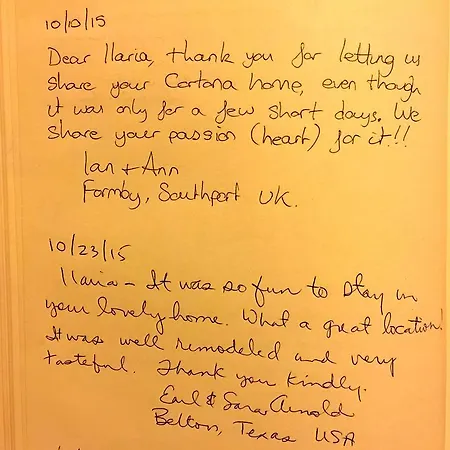 10/10/15
Dear Ilaria, thank you for letting us
share your Cortona home, even though
it was only for a few short days. We
share your passion (heart) for it!!
Ian + Ann
Formby, Southport UK.
10/23/15
Ilaria - It was so fun to stay in
your lovely home. What a great location!
It was well remodeled and very
tasteful. Thank you kindly.
Earl & Sara Arnold
Belton, Texas USA